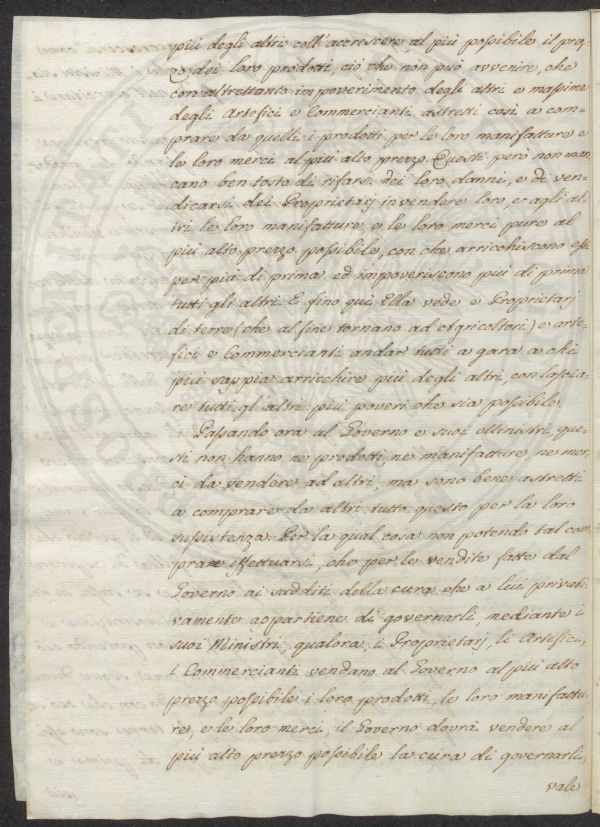 più degli altri coll'accrescere al più possibile il prez-
zo dei loro prodotti, ciò che non può avvenire, che
con altrettanto impoverimento degli altri e massime
degli Artefici e Commercianti astretti così a com-
prare da quelli i prodotti per le loro manifatture e
le loro merci al più alto prezzo. Questi però non man
cano ben tosto di rifarsi dei loro danni, e di ven-
dicarsi dei Proprietarj in vendere loro, e agli al-
tri le loro manifatture, e le loro merci pure al
più alto prezzo possibile, con che arricchiscono essi
per più di prima ed impoveriscono più di prima
tutti gli altri. E fino qui Ella vede e Proprietarj
di terre (che al fine tornano ad Agricoltori) e arte-
fici e Commercianti andar tutti a gara a chi
più sappia arricchire più degli altri, con lascia-
re tutti gl'altri più poveri che sia possibile.
Passando ora al Governo e suoi Ministri, que-
sti non hanno ne prodotti ne manifatture ne mer-
ci da vendere ad altri, ma sono bene astretti
a comprare da altri tutto questo per la loro
sussistenza. Per la qual cosa non potendo tal com
prare effettuarsi, che per le vendite fatte dal
Governo ai sudditi della cura che a lui privati-
vamente appartiene di governarli, mediante i
suoi Ministri, qualora i Proprietarj, li Artefici,
i Commercianti vendano al Governo al più alto
prezzo possibile i loro prodotti, le loro manifattu-
re, e le loro merci, il Governo dovrà vendere al
più alto prezzo possibile la cura di governarli,
vale